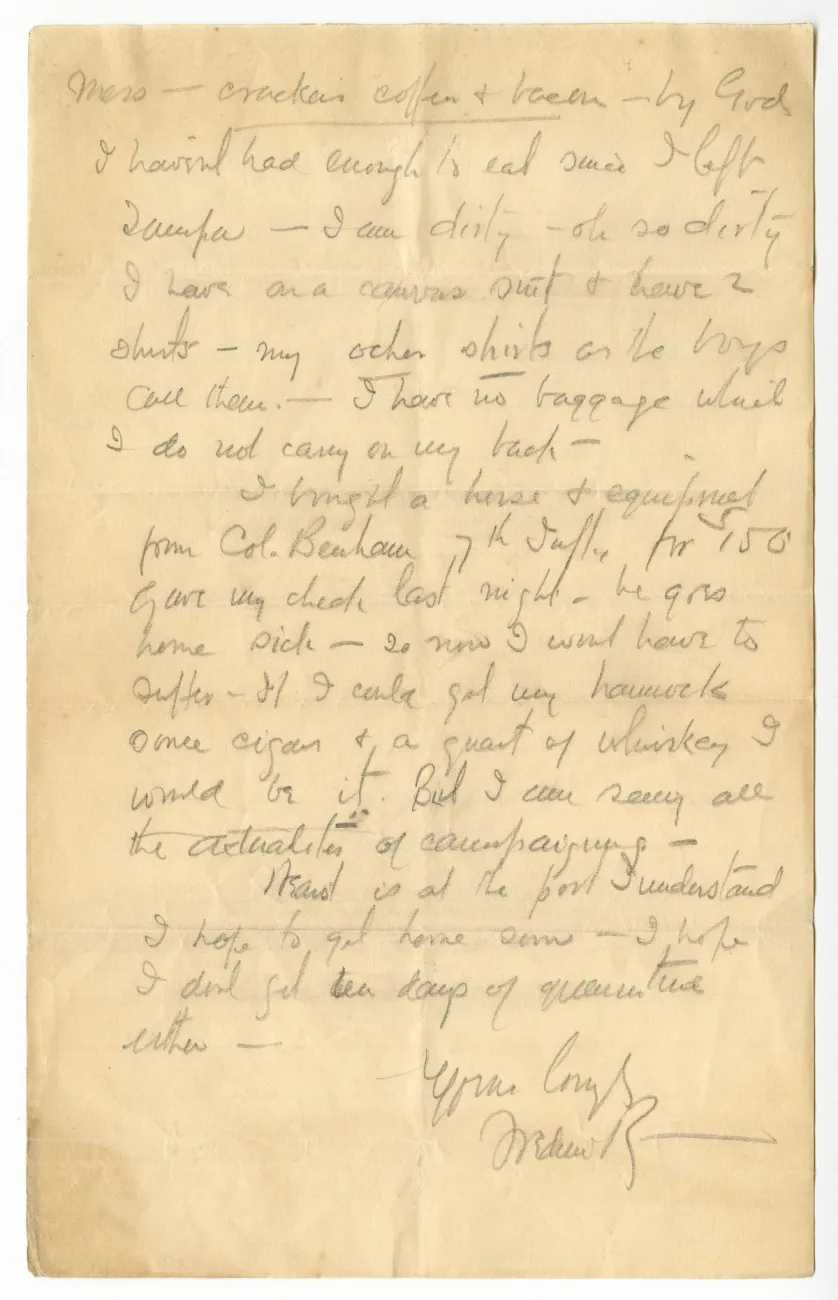 mess — crackers coffee & bacon — by God
I havent had enough to eat since I left
Tampa — I am dirty — oh so dirty
I have on a canvas suit & have 2
shirts — my other shirts as the boys
call them. — I have no baggage which
I do not carry on my back —
I bought a horse & equipment
from Col. Benham 7th Infty for $150
gave my check last night — he goes
home sick — so now I wont have to
suffer — If I could get my hammock
some cigars & a quart of whiskey I
would be it. But I am seeing all
the actualities of campaigning —
Hearst is at the port I understand
I hope to get home soon — I hope
I dont get ten days of quarantine
either —
Yours
Frederic R